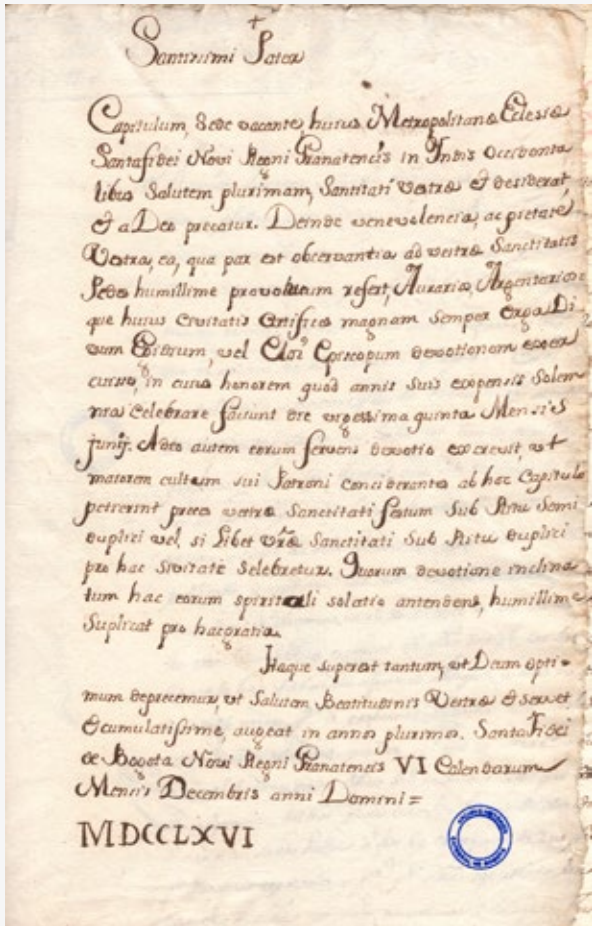 Santissimi Pater
Capitulum, Sede vacante, huius Metropolitanæ Eclesiæ
Santafidei Novi Regni Granatencis in Indis Occidenta
libus Salutem plurimam, Santitati Vestræ et desiderat,
et a Deo precatur. Deinde venevolencia, ac pietate
Vestra, ea, qua par est obcervantia ad vestræ Sanctitatis
Pedes humillime provolutum refert, Aurariæ, Argentariæ
que huius Civitatis Artifices magnam semper erga Di
vum Egidium, vel Eloi Episcopum devotionem exer
cuisse, in cuius honorem quod annis suis expensis Solem
nia celebrare faciunt die vigessima quinta Mensis
junij. Adeo autem eorum fervens devotio excrevit, ut
maiorem cultum sui Patroni conciderantes ab hoc Capitulo
petierint preces vestræ Sanctitati festum Sub Ritu Semi
duplici vel, si Libet vræ Sanctitati Sub Ritu duplici
pro hac sivitate selebretur. Quorum devotione inclina
tum hac eorum spirituali solatio antendens, humillime
Suplicat pro hac gratia.
Itaque superest tantum, ut Deum opti=
mum deprecemur, ut Salutem Beatitudinis Vestræ et servet
et cumulatissime, augeat in annos plurimos. Santa Fidei
de Bogota Novi Regni Granatencis VI Calendarum
Mensis Decembris anni Domini=
MDCCLXVI